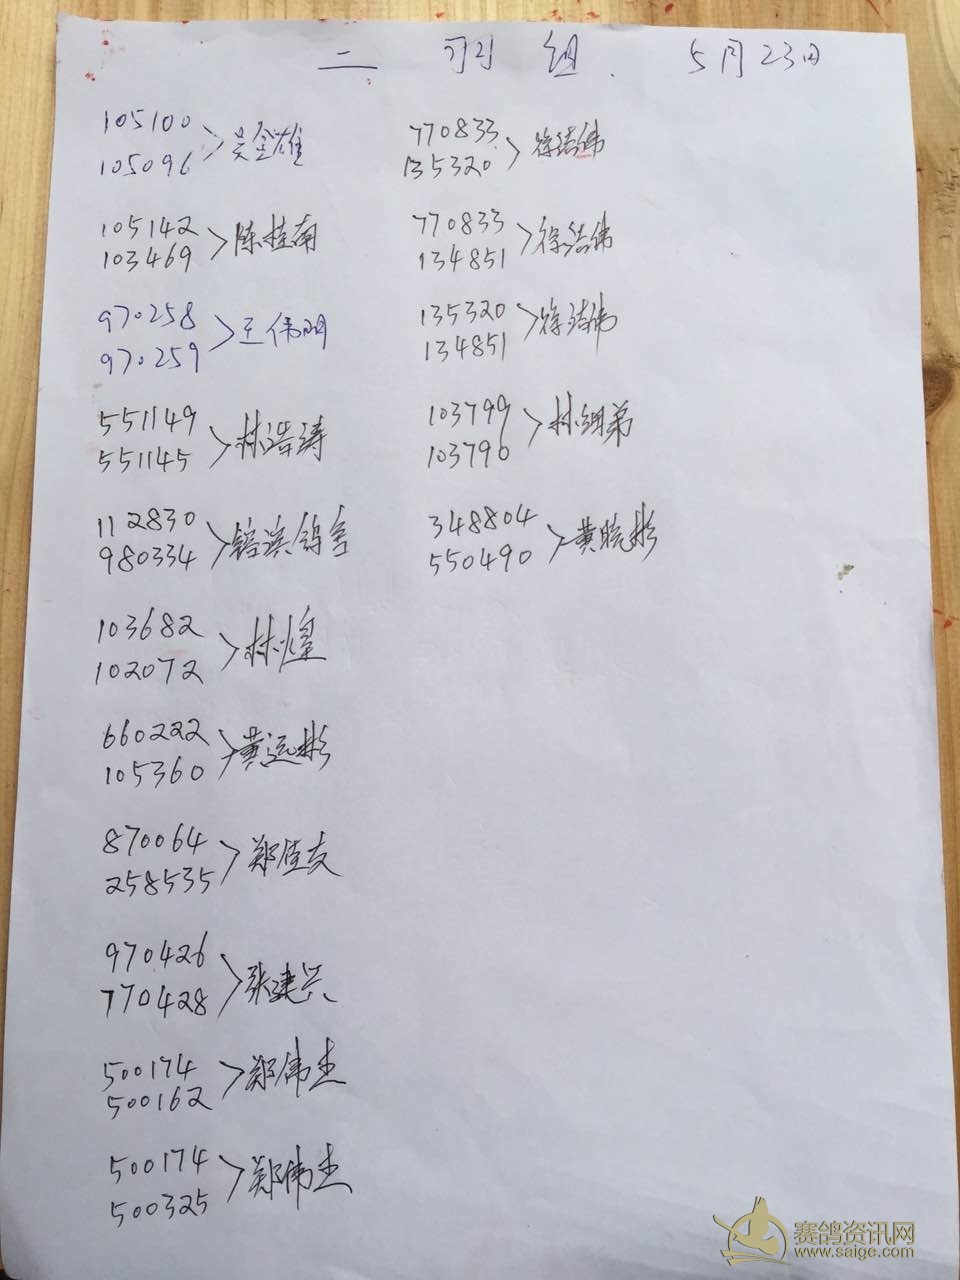 二 羽 组 . 5月23日
105100
105096 > 吴金雄
105142
103469 > 陈桂南
970258
970259 > 王伟明
551149
551145 > 林浩涛
112830
980334 > 鸽舍
103682
102072 > 林煌
660222
105360 > 黄远彬
870064
258535 > 郑佳友
970426
770428 > 张建兴
500174
500162 > 郑伟杰
500174
500325 > 郑伟杰
770833
135320 > 徐洁伟
770833
134851 > 徐洁伟
135320
134851 > 徐洁伟
103799
103790 > 林细弟
348804
550490 > 黄晓彬
赛鸽资讯网
www.saige.com